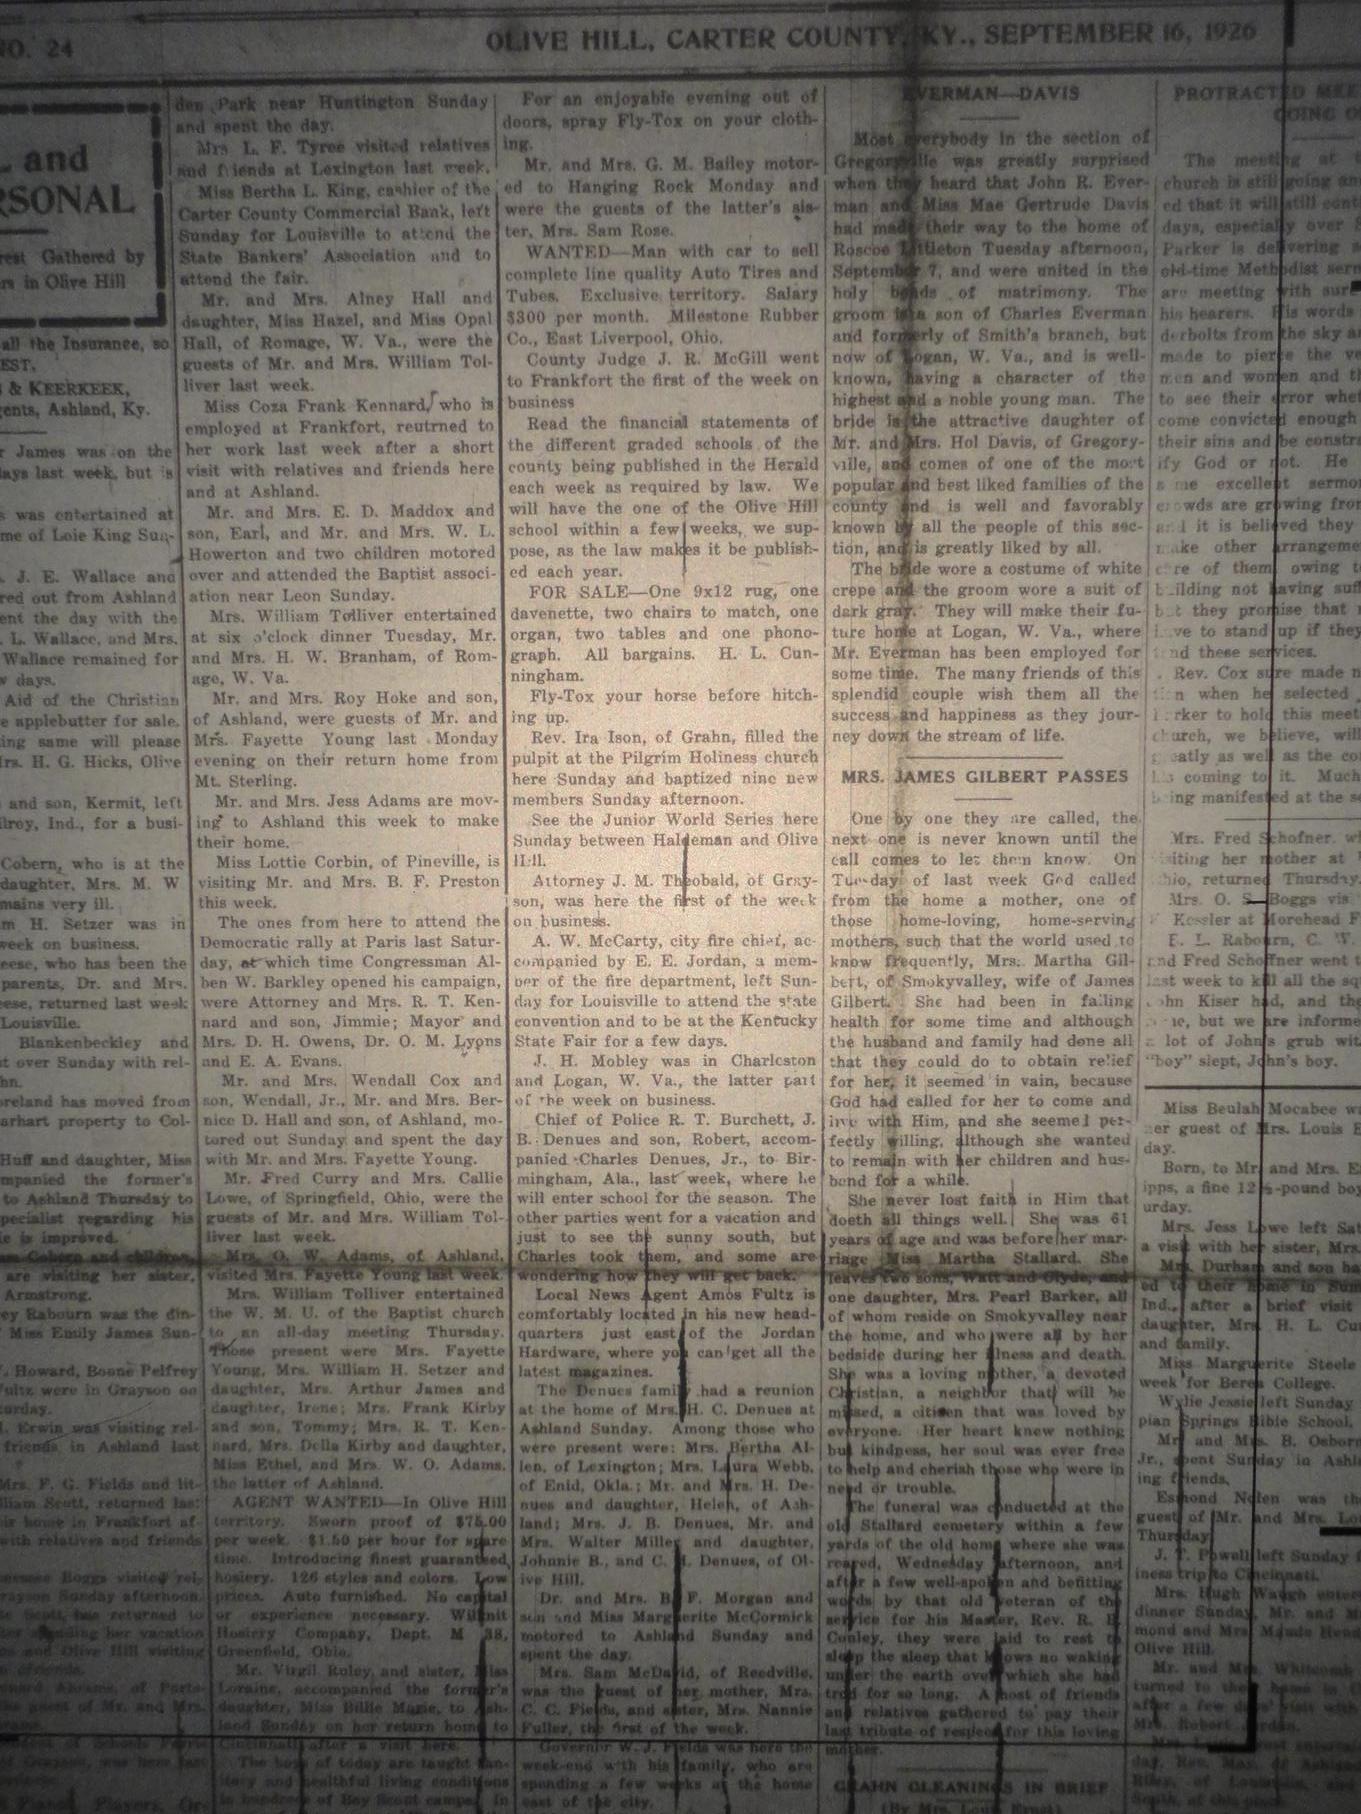 NO. 24
OLIVE HILL, CARTER COUNTY, KY., SEPTEMBER 16, 1926
and
Gathered by
in Olive Hill
all the Insurance, so
& KEERKEEK,
Ashland, Ky.
James was on the
last week, but is
was entertained at
of Loie King Sun-
J. E. Wallace and
out from Ashland
the day with the
L. Wallace, and Mrs.
Wallace remained for
days.
Aid of the Christian
applebutter for sale.
same will please
H. G. Hicks, Olive
and son, Kermit, left
Ind., for a busi-
Cobern, who is at the
daughter, Mrs. M. W
very ill.
H. Setzer was in
on business.
who has been the
parents, Dr. and Mrs.
returned last week
Louisville.
Blankenbeckley and
over Sunday with rel-
has moved from
property to Col-
Huff and daughter, Miss
the former's
to Ashland Thursday to
regarding his
is improved.
Cobern and children,
are visiting her sister,
Armstrong.
Rabourn was the din-
Miss Emily James Sun-
Howard, Boone Pelfrey
were in Grayson on
Erwin was visiting rel-
friends in Ashland last
Mrs. F. G. Fields and lit-
Scott, returned last
home in Frankfort af-
with relatives and friends
Boggs visited rel-
Sunday afternoon.
has returned to
her vacation
and Olive Hill visiting
den Park near Huntington Sunday
and spent the day.
Mrs L. F. Tyree visited relatives
and friends at Lexington last week.
Miss Bertha L. King, cashier of the
Carter County Commercial Bank, left
Sunday for Louisville to attend the
State Bankers' Association and to
attend the fair.
Mr. and Mrs. Alney Hall and
daughter, Miss Hazel, and Miss Opal
Hall, of Romage, W. Va., were the
guests of Mr. and Mrs. William Tol-
liver last week.
Miss Coza Frank Kennard, who is
employed at Frankfort, reutrned to
her work last week after a short
visit with relatives and friends here
and at Ashland.
Mr. and Mrs. E. D. Maddox and
son, Earl, and Mr. and Mrs. W. L.
Howerton and two children motored
over and attended the Baptist associ-
ation near Leon Sunday.
Mrs. William Tolliver entertained
at six o'clock dinner Tuesday, Mr.
and Mrs. H. W. Branham, of Rom-
age, W. Va.
Mr. and Mrs. Roy Hoke and son,
of Ashland, were guests of Mr. and
Mrs. Fayette Young last Monday
evening on their return home from
Mt. Sterling.
Mr. and Mrs. Jess Adams are mov-
ing to Ashland this week to make
their home.
Miss Lottie Corbin, of Pineville, is
visiting Mr. and Mrs. B. F. Preston
this week.
The ones from here to attend the
Democratic rally at Paris last Satur-
day, at which time Congressman Al-
ben W. Barkley opened his campaign,
were Attorney and Mrs. R. T. Ken-
nard and son, Jimmie; Mayor and
Mrs. D. H. Owens, Dr. O. M. Lyons
and E. A. Evans.
Mr. and Mrs. Wendall Cox and
son, Wendall, Jr., Mr. and Mrs. Ber-
nice D. Hall and son, of Ashland, mo-
tored out Sunday and spent the day
with Mr. and Mrs. Fayette Young.
Mr. Fred Curry and Mrs. Callie
Lowe, of Springfield, Ohio, were the
guests of Mr. and Mrs. William Tol-
liver last week.
Mrs. O. W. Adams, of Ashland,
visited Mrs. Fayette Young last week.
Mrs. William Tolliver entertained
the W. M. U. of the Baptist church
to an all-day meeting Thursday.
Those present were Mrs. Fayette
Young, Mrs. William H. Setzer and
daughter, Mrs. Arthur James and
daughter, Irene; Mrs. Frank Kirby
and son, Tommy; Mrs. R. T. Ken-
nard, Mrs. Della Kirby and daughter,
Miss Ethel, and Mrs. W. O. Adams,
the latter of Ashland.
AGENT WANTED—In Olive Hill
territory. Sworn proof of $75.00
per week. $1.50 per hour for spare
time. Introducing finest guaranteed
hosiery. 126 styles and colors. Low
prices. Auto furnished. No capital
or experience necessary. Wilknit
Hosiery Company, Dept. M 38,
Greenfield, Ohio.
Mr. Virgil Roley and sister, Miss
Loraine, accompanied the former's
daughter, Miss Billie Marie, to Ash-
land Sunday on her return home to
Cincinnati after a visit here.
The boys of today are taught san-
itary and healthful living conditions
in hundreds of Boy Scout camps. In
For an enjoyable evening out of
doors, spray Fly-Tox on your cloth-
ing.
Mr. and Mrs. G. M. Bailey motor-
ed to Hanging Rock Monday and
were the guests of the latter's sis-
ter, Mrs. Sam Rose.
WANTED—Man with car to sell
complete line quality Auto Tires and
Tubes. Exclusive territory. Salary
$300 per month. Milestone Rubber
Co., East Liverpool, Ohio.
County Judge J. R. McGill went
to Frankfort the first of the week on
business
Read the financial statements of
the different graded schools of the
county being published in the Herald
each week as required by law. We
will have the one of the Olive Hill
school within a few weeks, we sup-
pose, as the law makes it be publish-
ed each year.
FOR SALE—One 9x12 rug, one
davenette, two chairs to match, one
organ, two tables and one phono-
graph. All bargains. H. L. Cun-
ningham.
Fly-Tox your horse before hitch-
ing up.
Rev. Ira Ison, of Grahn, filled the
pulpit at the Pilgrim Holiness church
here Sunday and baptized nine new
members Sunday afternoon.
See the Junior World Series here
Sunday between Haldeman and Olive
Hill.
Attorney J. M. Theobald, of Gray-
son, was here the first of the week
on business.
A. W. McCarty, city fire chief, ac-
companied by E. E. Jordan, a mem-
ber of the fire department, left Sun-
day for Louisville to attend the state
convention and to be at the Kentucky
State Fair for a few days.
J. H. Mobley was in Charleston
and Logan, W. Va., the latter part
of the week on business.
Chief of Police R. T. Burchett, J.
B. Denues and son, Robert, accom-
panied Charles Denues, Jr., to Bir-
mingham, Ala., last week, where he
will enter school for the season. The
other parties went for a vacation and
just to see the sunny south, but
Charles took them, and some are
wondering how they will get back.
Local News Agent Amos Fultz is
comfortably located in his new head-
quarters just east of the Jordan
Hardware, where you can get all the
latest magazines.
The Denues family had a reunion
at the home of Mrs. H. C. Denues at
Ashland Sunday. Among those who
were present were: Mrs. Bertha Al-
len, of Lexington; Mrs. Laura Webb,
of Enid, Okla.; Mr. and Mrs. H. De-
nues and daughter, Helen, of Ash-
land; Mrs. J. B. Denues, Mr. and
Mrs. Walter Miller and daughter,
Johnnie B., and C. H. Denues, of Ol-
ive Hill.
Dr. and Mrs. B. F. Morgan and
son and Miss Marguerite McCormick
motored to Ashland Sunday and
spent the day.
Mrs. Sam McDavid, of Reedville,
was the guest of her mother, Mrs.
C. C. Fields, and sister, Mrs. Nannie
Fuller, the first of the week.
Governor W. J. Fields was here the
week-end with his family, who are
spending a few weeks at the home
east of the city.
EVERMAN—DAVIS
Most everybody in the section of
Gregoryville was greatly surprised
when they heard that John R. Ever-
man and Miss Mae Gertrude Davis
had made their way to the home of
Roscoe Littleton Tuesday afternoon,
September 7, and were united in the
holy bonds of matrimony. The
groom is a son of Charles Everman
and formerly of Smith's branch, but
now of Logan, W. Va., and is well-
known, having a character of the
highest and a noble young man. The
bride is the attractive daughter of
Mr. and Mrs. Hol Davis, of Gregory-
ville, and comes of one of the most
popular and best liked families of the
county and is well and favorably
known by all the people of this sec-
tion, and is greatly liked by all.
The bride wore a costume of white
crepe and the groom wore a suit of
dark gray. They will make their fu-
ture home at Logan, W. Va., where
Mr. Everman has been employed for
some time. The many friends of this
splendid couple wish them all the
success and happiness as they jour-
ney down the stream of life.
MRS. JAMES GILBERT PASSES
One by one they are called, the
next one is never known until the
call comes to let them know. On
Tuesday of last week God called
from the home a mother, one of
those home-loving, home-serving
mothers, such that the world used to
know frequently, Mrs. Martha Gil-
bert, of Smokyvalley, wife of James
Gilbert. She had been in failing
health for some time and although
the husband and family had done all
that they could do to obtain relief
for her, it seemed in vain, because
God had called for her to come and
live with Him, and she seemed per-
fectly willing, although she wanted
to remain with her children and hus-
band for a while.
She never lost faith in Him that
doeth all things well. She was 61
years of age and was before her mar-
riage Miss Martha Stallard. She
leaves two sons, Watt and Clyde, and
one daughter, Mrs. Pearl Barker, all
of whom reside on Smokyvalley near
the home, and who were all by her
bedside during her illness and death.
She was a loving mother, a devoted
Christian, a neighbor that will be
missed, a citizen that was loved by
everyone. Her heart knew nothing
but kindness, her soul was ever free
to help and cherish those who were in
need or trouble.
The funeral was conducted at the
old Stallard cemetery within a few
yards of the old home where she was
reared, Wednesday afternoon, and
after a few well-spoken and befitting
words by that old veteran of the
service for his Master, Rev. R. B.
Conley, they were laid to rest to
sleep the sleep that knows no waking
under the earth over which she had
trod for so long. A host of friends
and relatives gathered to pay their
last tribute of respect for this loving
mother.
GRAHN GLEANINGS IN BRIEF
PROTRACTED
GOING
The meeting at
church is still going
ed that it will still
days, especially over
Parker is delivering
old-time Methodist
are meeting with
his hearers. His words
from the sky
made to pierce the
men and women and
to see their error
come convicted enough
their sins and be
ify God or not. He
some excellent
crowds are growing from
and it is believed they
make other
care of them, owing to
building not having
but they promise that
have to stand up if they
these services.
Rev. Cox sure made
when he selected
to hold this
church, we believe, will
as well as the
coming to it. Much
being manifested at the
Mrs. Fred Schofner
visiting her mother at
returned Thursday.
Mrs. O. S. Boggs
Kessler at Morehead
E. L. Rabourn, C. W.
and Fred Schoffner went
last week to kill all the
John Kiser had, and
but we are
a lot of John's grub
"boy" slept, John's boy.
Miss Beulah Mocabee
ner guest of Mrs. Louis
day.
Born, to Mr. and Mrs.
a fine 12½-pound boy
urday.
Mrs. Jess Lowe left
a visit with her sister, Mrs.
Mrs. Durham and son
ed to their home in
Ind., after a brief visit
daughter, Mrs. H. L.
and family.
Miss Marguerite Steele
week for Berea College.
Wylie Jessie left Sunday
Springs Bible School.
Mr. and Mrs. B. Osborn
Jr., spent Sunday in
ing friends.
Esmond Nolen was
guest of Mr. and Mrs.
Thursday.
J. T. Powell left Sunday
iness trip to Cincinnati.
Mrs. Hugh Waugh
dinner Sunday, Mr. and
mond and Mrs. Maude
Olive Hill.
Mr. and Mrs. Whitcomb
turned to their home in
after a few days' visit with
Mrs. Robert Jordan.